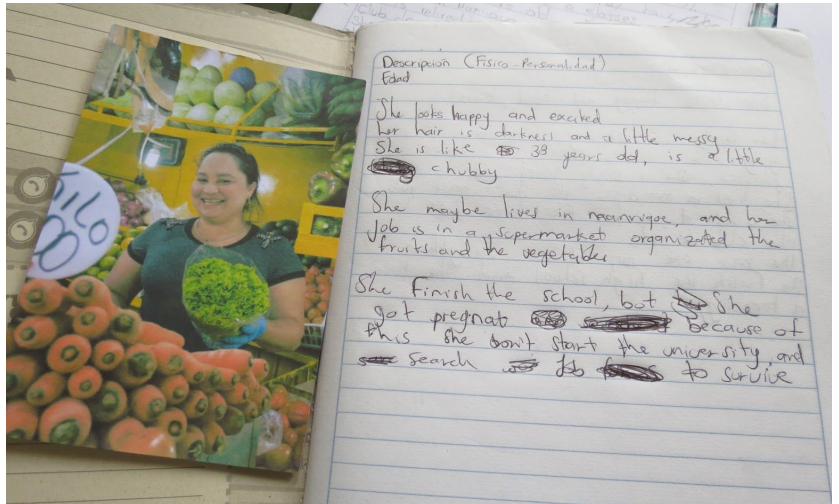 KILO
00
Descripción (Físico-Personalidad)
Edad
She looks happy and excited
her hair is darkness and a little messy
She is like 38 years old, is a little
chubby
She maybe lives in manrique, and her
job is in a supermarket organizated the
fruits and the vegetables
She finish the school, but She
got pregnat because of
this she don't start the university, and
search Job to survive